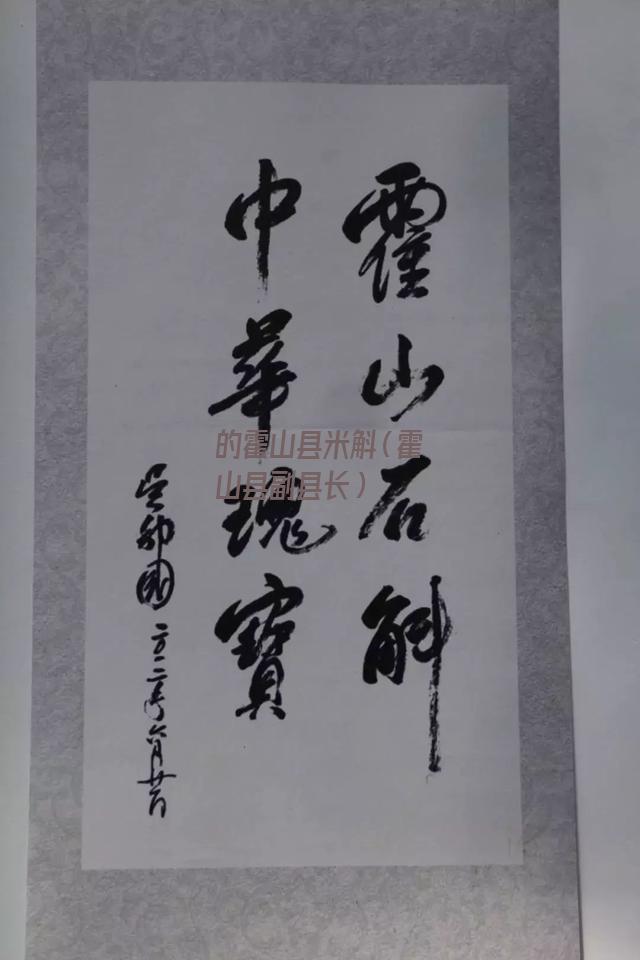 霍山石斛
中華瑰寶
吴邦國
二〇一二年六月廿一日
的霍山县米斛（霍
山县副县长）